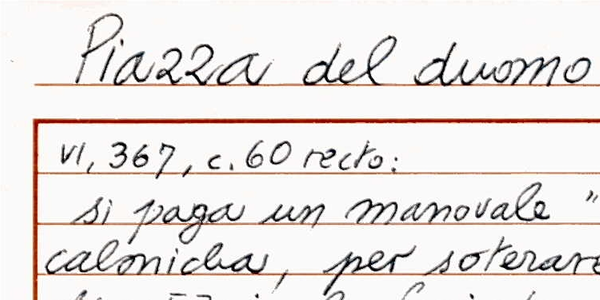 Piazza del duomo
VI, 367, c. 60 recto:
si paga un manovale "
calonicha, per soterare